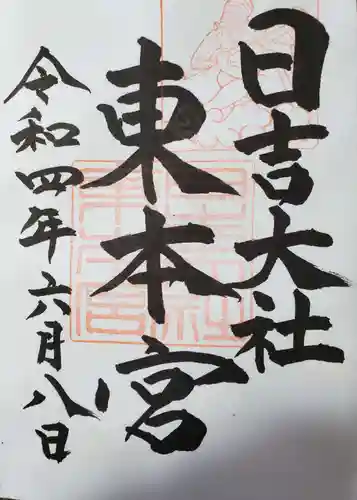 日吉大社
東本宮
令和四年六月八日